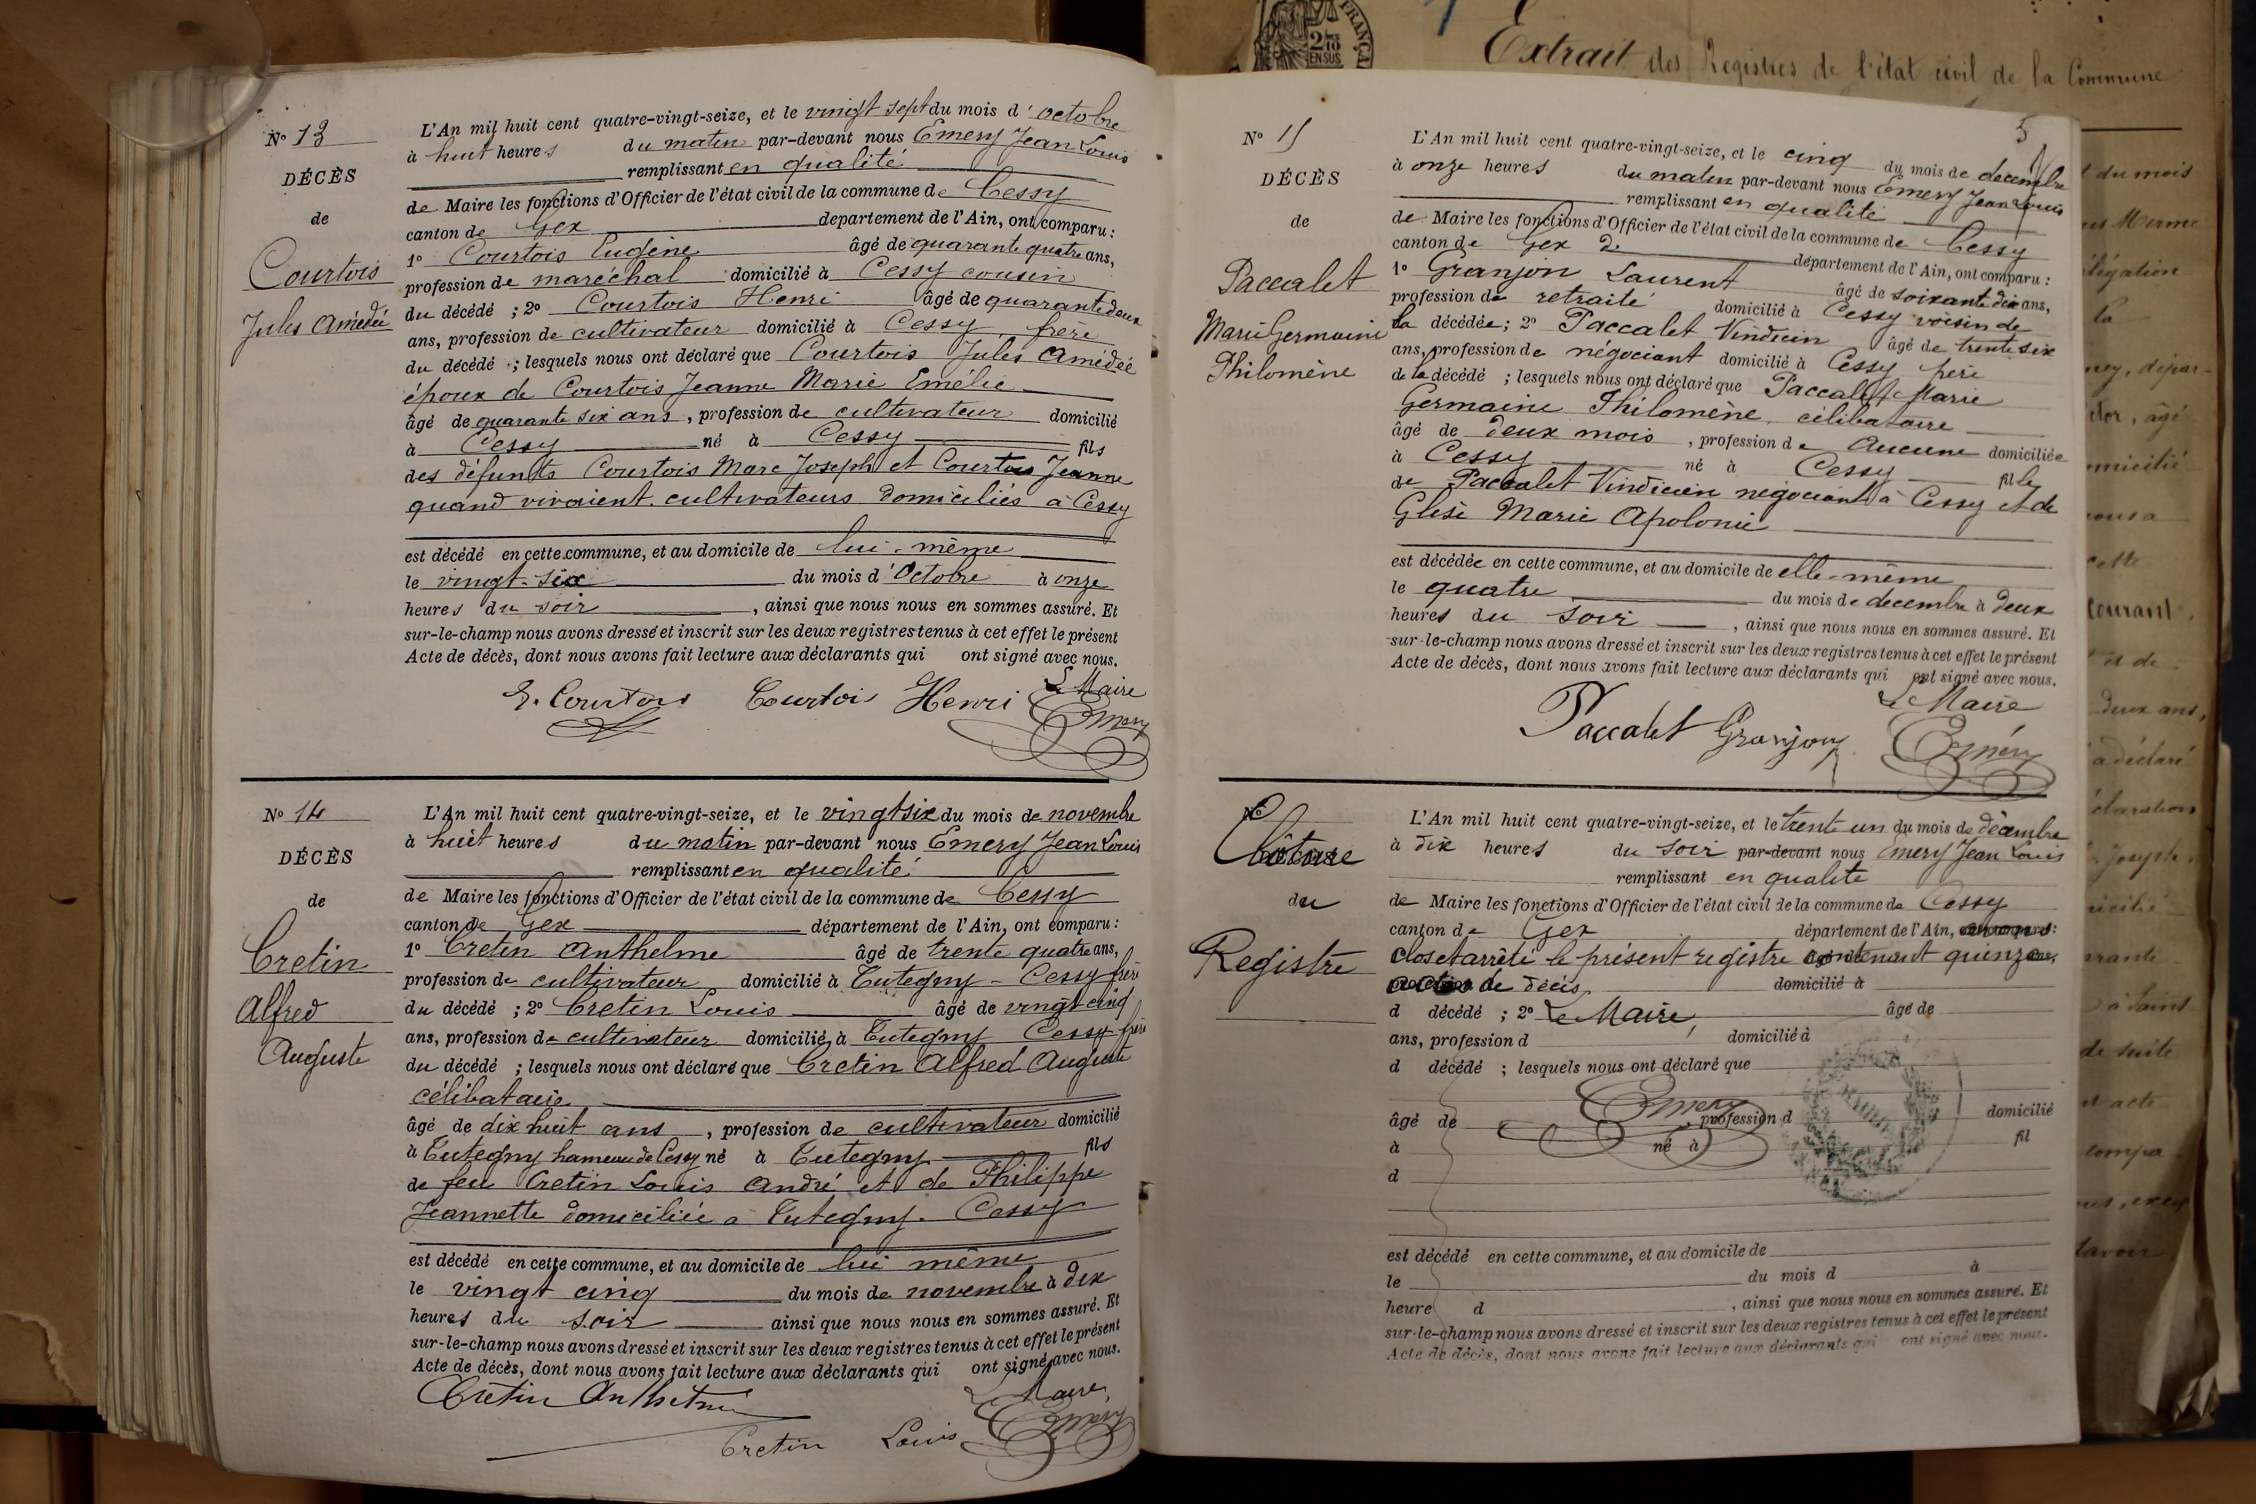 N° 13
DÉCÈS
de
Courtois
Jules Amédée
L'An mil huit cent quatre-vingt-seize, et le vingt sept du mois d'octobre
à huit heures du matin par-devant nous Emery Jean Louis
remplissant en qualité
de Maire les fonctions d'Officier de l'état civil de la commune de Cessy
canton de Gex département de l'Ain, ont comparu :
1° Courtois Eugène âgé de quarante quatre ans,
profession de maréchal domicilié à Cessy cousin
du décédé ; 2° Courtois Henri âgé de quarante deux
ans, profession de cultivateur domicilié à Cessy, frère
du décédé ; lesquels nous ont déclaré que Courtois Jules Amédée
époux de Courtois Jeanne Marie Emélie
âgé de quarante six ans, profession de cultivateur domicilié
à Cessy né à Cessy fils
des défunts Courtois Marc Joseph et Courtois Jeanne
quand vivaient cultivateurs domiciliés à Cessy
est décédé en cette commune, et au domicile de lui-même
le vingt-six du mois d'Octobre à onze
heures du soir, ainsi que nous nous en sommes assuré. Et
sur-le-champ nous avons dressé et inscrit sur les deux registres tenus à cet effet le présent
Acte de décès, dont nous avons fait lecture aux déclarants qui ont signé avec nous.
E. Courtois Courtois Henri Le Maire
Emery
N° 14
DÉCÈS
de
Cretin
Alfred
Auguste
L'An mil huit cent quatre-vingt-seize, et le vingt six du mois de novembre
à huit heures du matin par-devant nous Emery Jean Louis
remplissant en qualité
de Maire les fonctions d'Officier de l'état civil de la commune de Cessy
canton de Gex département de l'Ain, ont comparu :
1° Cretin Anthelme âgé de trente quatre ans,
profession de cultivateur domicilié à Tutegny - Cessy frère
du décédé ; 2° Cretin Louis âgé de vingt cinq
ans, profession de cultivateur domicilié à Tutegny Cessy frère
du décédé ; lesquels nous ont déclaré que Cretin Alfred Auguste
célibataire
âgé de dix huit ans, profession de cultivateur domicilié
à Tutegny hameau de Cessy né à Tutegny fils
de feu Cretin Louis André et de Philippe
Jeannette domiciliée à Tutegny. Cessy
est décédé en cette commune, et au domicile de lui même
le vingt cinq du mois de novembre à dix
heures du soir ainsi que nous nous en sommes assuré. Et
sur-le-champ nous avons dressé et inscrit sur les deux registres tenus à cet effet le présent
Acte de décès, dont nous avons fait lecture aux déclarants qui ont signé avec nous.
Cretin Anthelme Le Maire,
Cretin Louis Emery
5
N° 15
DÉCÈS
de
Paccalet
Marie Germaine
Philomène
L'An mil huit cent quatre-vingt-seize, et le cinq du mois de décembre
à onze heures du matin par-devant nous Emery Jean Louis
remplissant en qualité
de Maire les fonctions d'Officier de l'état civil de la commune de Cessy
canton de Gex département de l'Ain, ont comparu :
1° Granjon Laurent âgé de soixante dix ans,
profession de retraité domicilié à Cessy voisin de
la décédée ; 2° Paccalet Vindicien âgé de trente six
ans, profession de négociant domicilié à Cessy père
de la décédé ; lesquels nous ont déclaré que Paccalet Marie
Germaine Philomène, célibataire
âgé de deux mois, profession de aucune domiciliée
à Cessy né à Cessy fille
de Paccalet Vindicien négociant à Cessy et de
Glisè Marie Apolonie
est décédée en cette commune, et au domicile de elle-même
le quatre du mois de décembre à deux
heures du soir, ainsi que nous nous en sommes assuré. Et
sur-le-champ nous avons dressé et inscrit sur les deux registres tenus à cet effet le présent
Acte de décès, dont nous avons fait lecture aux déclarants qui ont signé avec nous.
Le Maire
Paccalet Granjon Emery
N°
Clôture
du
Registre
L'An mil huit cent quatre-vingt-seize, et le trente un du mois de décembre
à dix heures du soir par-devant nous Emery Jean Louis
remplissant en qualité
de Maire les fonctions d'Officier de l'état civil de la commune de Cessy
canton de Gex département de l'Ain, avons
clos et arrêté le présent registre contenant quinze
actes de décès domicilié à
d décédé ; 2° Le Maire, âgé de
ans, profession d domicilié à
d décédé ; lesquels nous ont déclaré que
Emery
âgé de profession d domicilié
à né à fil
d
est décédé en cette commune, et au domicile de
le du mois d à
heure d, ainsi que nous nous en sommes assuré. Et
sur-le-champ nous avons dressé et inscrit sur les deux registres tenus à cet effet le présent
Acte de décès, dont nous avons fait lecture aux déclarants qui ont signé avec nous.
Extrait des Registres de l'état civil de la Commune
du mois
Merme
délégation
la
ney, dépar-
âgé
domicilié
cette
courant,
et de
deux ans,
a déclaré
déclaration
Joseph,
à Saint
de suite
acte
compa